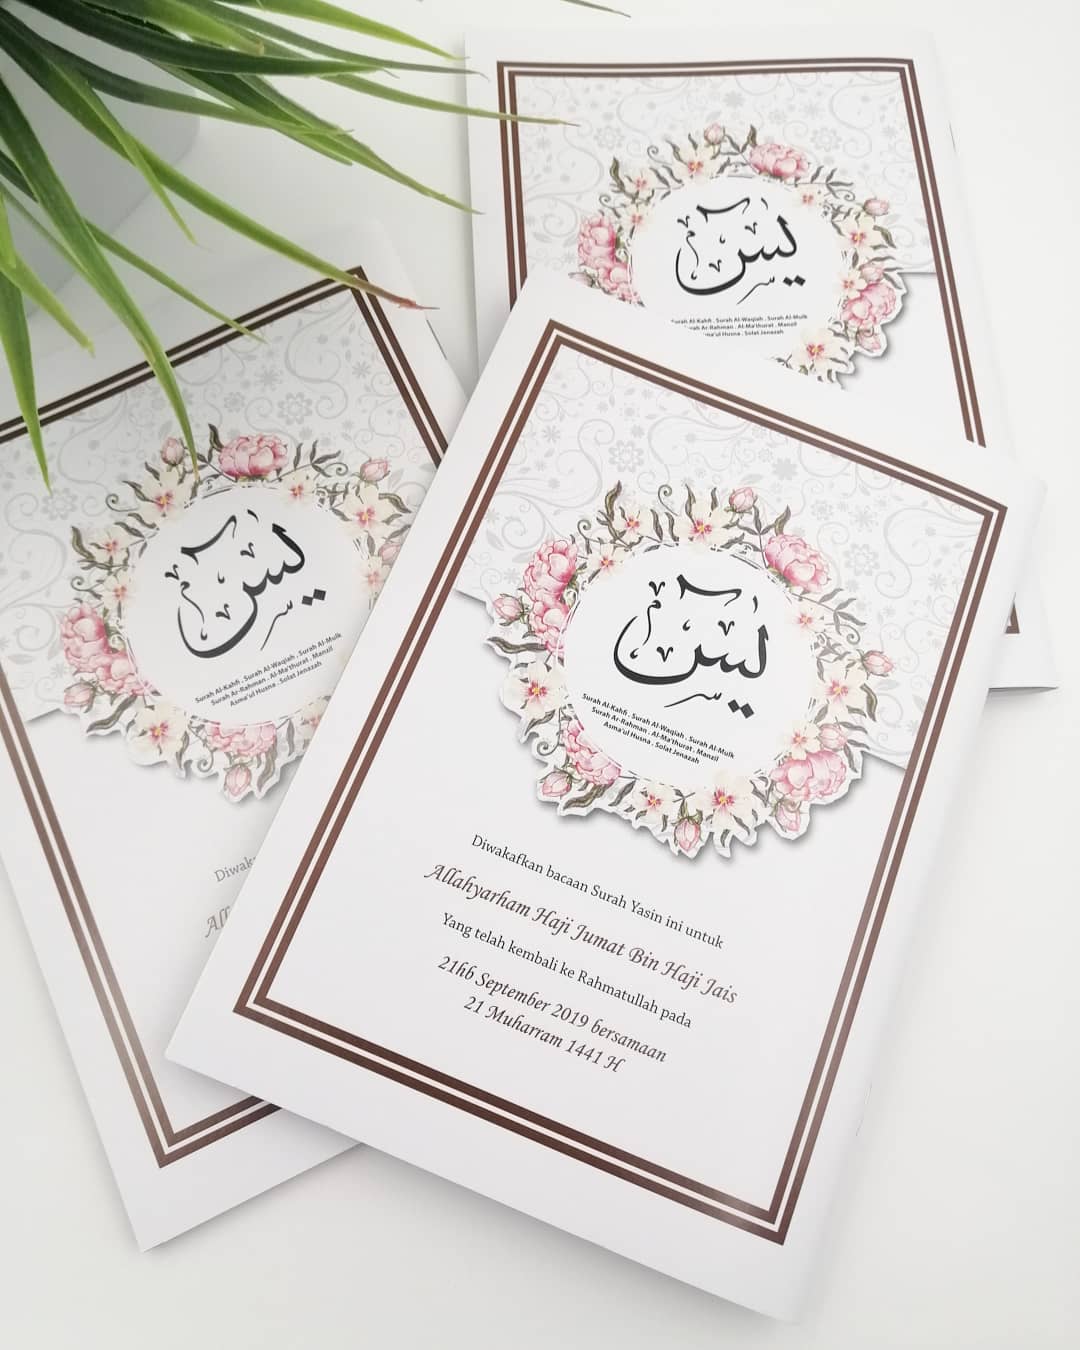 يس
Surah Al-Kahfi . Surah Al-Waqiah . Surah Al-Mulk
Surah Ar-Rahman . Al-Ma'thurat . Manzil
Asma'ul Husna . Solat Jenazah
Diwakafkan bacaan Surah Yasin ini untuk
Allahyarham Haji Jumat Bin Haji Jais
Yang telah kembali ke Rahmatullah pada
21hb September 2019 bersamaan
21 Muharram 1441 H
يس
Surah Al-Kahfi . Surah Al-Waqiah . Surah Al-Mulk
Surah Ar-Rahman . Al-Ma'thurat . Manzil
Asma'ul Husna . Solat Jenazah
يس
Surah Al-Kahfi . Surah Al-Waqiah . Surah Al-Mulk
Ar-Rahman . Al-Ma'thurat . Manzil
Husna . Solat Jenazah